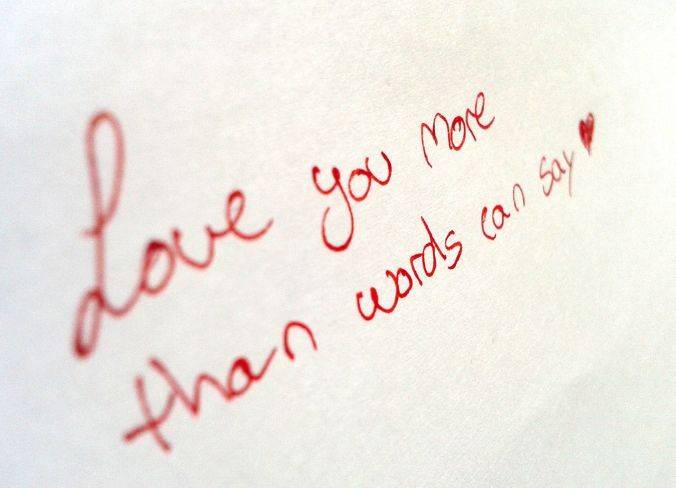 Love you More
than words can say♥